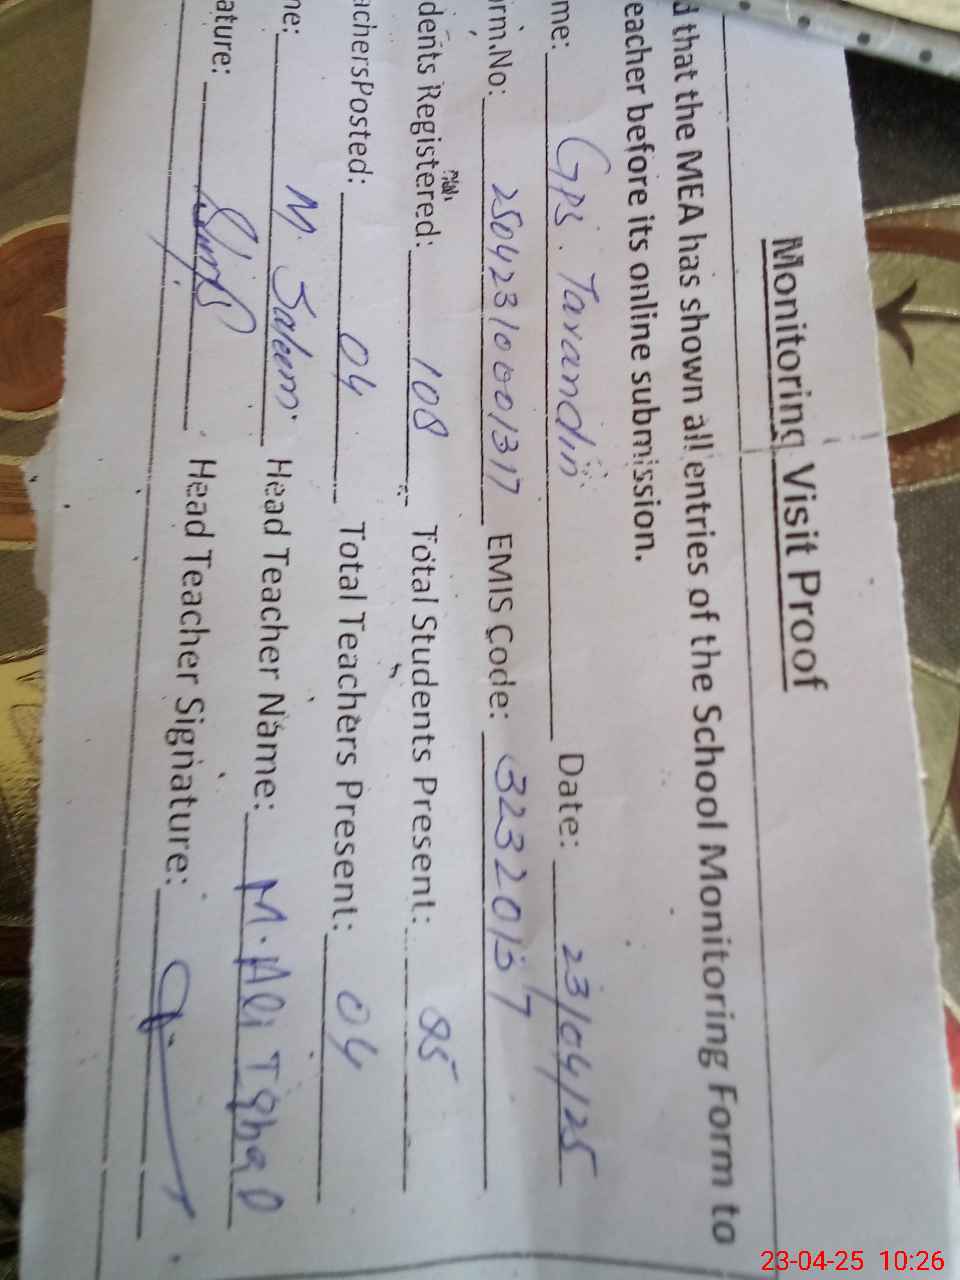 Monitoring Visit Proof
d that the MEA has shown all entries of the School Monitoring Form to
eacher before its online submission.
me: GPS. Tarandin Date: 23/04/25
rm.No: 2504231001317 EMIS Code:
dents Registered: 108 Total Students Present:
achersPosted: 04 Total Teachers Present: 04
ne: M. Saleem Head Teacher Name: M. Ali Iqbal
ature: Head Teacher Signature:
23-04-25 10:26